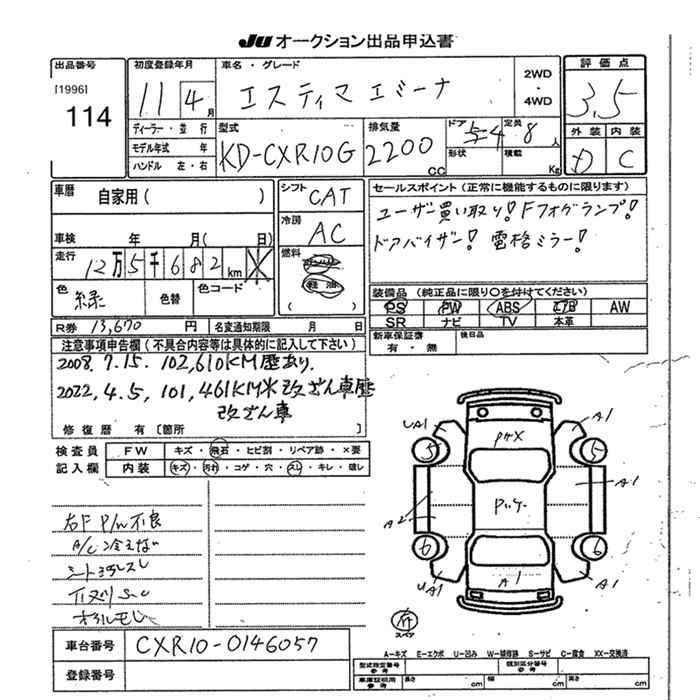 JU オークション出品申込書
出品番号
[1996]
114
初度登録年月
11 4 月
車名・グレード
エスティマエミーナ
2WD
・
4WD
評価点
3.5
外装 内装
D C
ディーラー・並行
モデル年式 年
ハンドル 左・右
型式
KD-CXR10G
排気量
2200 CC
ドア 5 4
形状
定員 8 人
積載 Kg
車歴
自家用( )
車検 年 月( 日)
走行
12万5千682 km
色
緑
色替
色コード
シフト CAT
冷房 AC
燃料
軽油
セールスポイント(正常に機能するものに限ります)
ユーザー買い取り!Fフォグランプ!
ドアバイザー! 電格ミラー!
装備品(純正品に限り○を付けてください)
PS PW ABS エアB AW
SR ナビ TV 本革
新車保証書
有・無
後日品
R券 13,670 円 名変通知期限 月 日
注意事項申告欄(不具合内容等は具体的に記入して下さい)
2008.7.15. 102,610KM歴あり.
2022.4.5, 101,461KM※改ざん車歴
改ざん車
修復歴 有〔箇所 〕
検査員
記入欄
FW キズ・飛石・ヒビ割・リペア跡・×要
内装 キズ・汚れ・コゲ・穴・スレ・キレ・破レ
右F P/W不良
A/C冷えない
シート汚スレ
車台番号 CXR10-0146057
登録番号
UA1
A1
5
5
A2
A1
6
6
UA1
A1
A1
スペア
A-キズ E-エクボ U-凹み W-補修跡 S-サビ C-腐食 XX-交換済
型式指定番号
参考
類別区分番号
参考
車庫証明用
参考
長さ cm
幅 cm
高さ cm